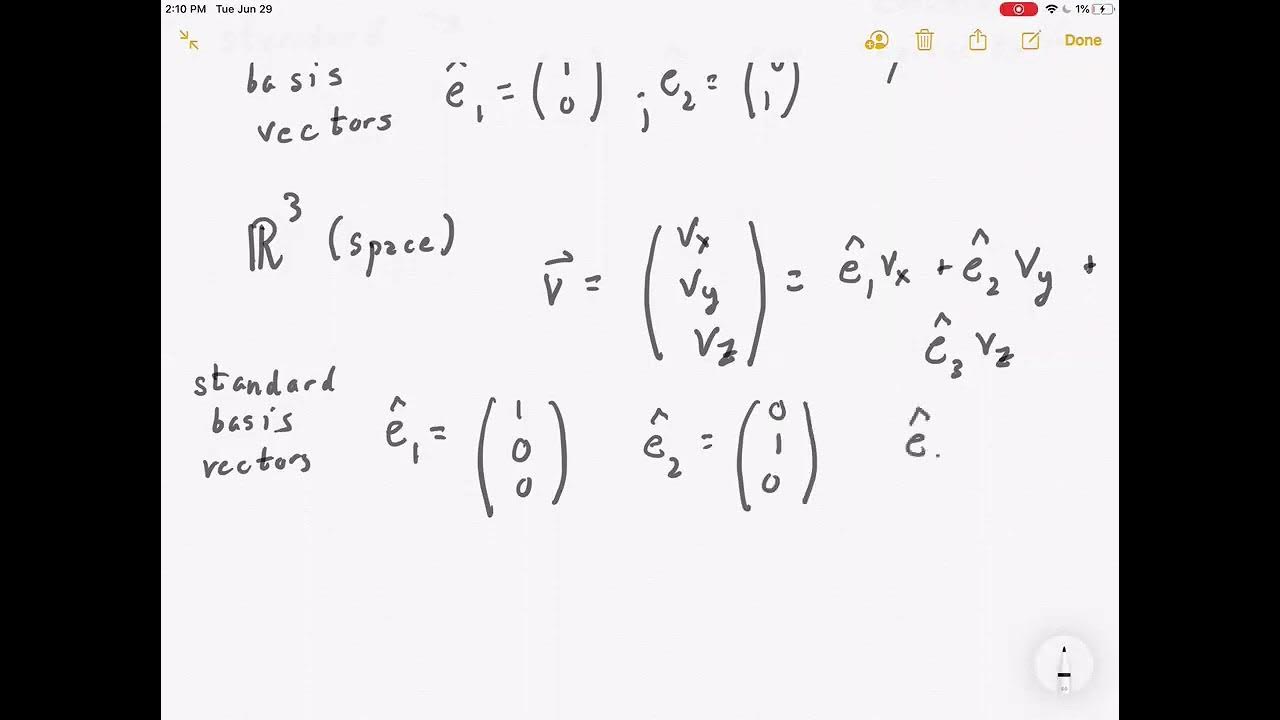 2:10 PM Tue Jun 29 1%
Done
basis
vectors
ê₁ = (1 0) ; e₂ = (0 1)
ℝ³ (space)
v⃗ = (vx vy vz) = ê₁vx + ê₂vy +
ê₃vz
standard
basis
vectors
ê₁ = (1 0 0) ê₂ = (0 1 0) ê.